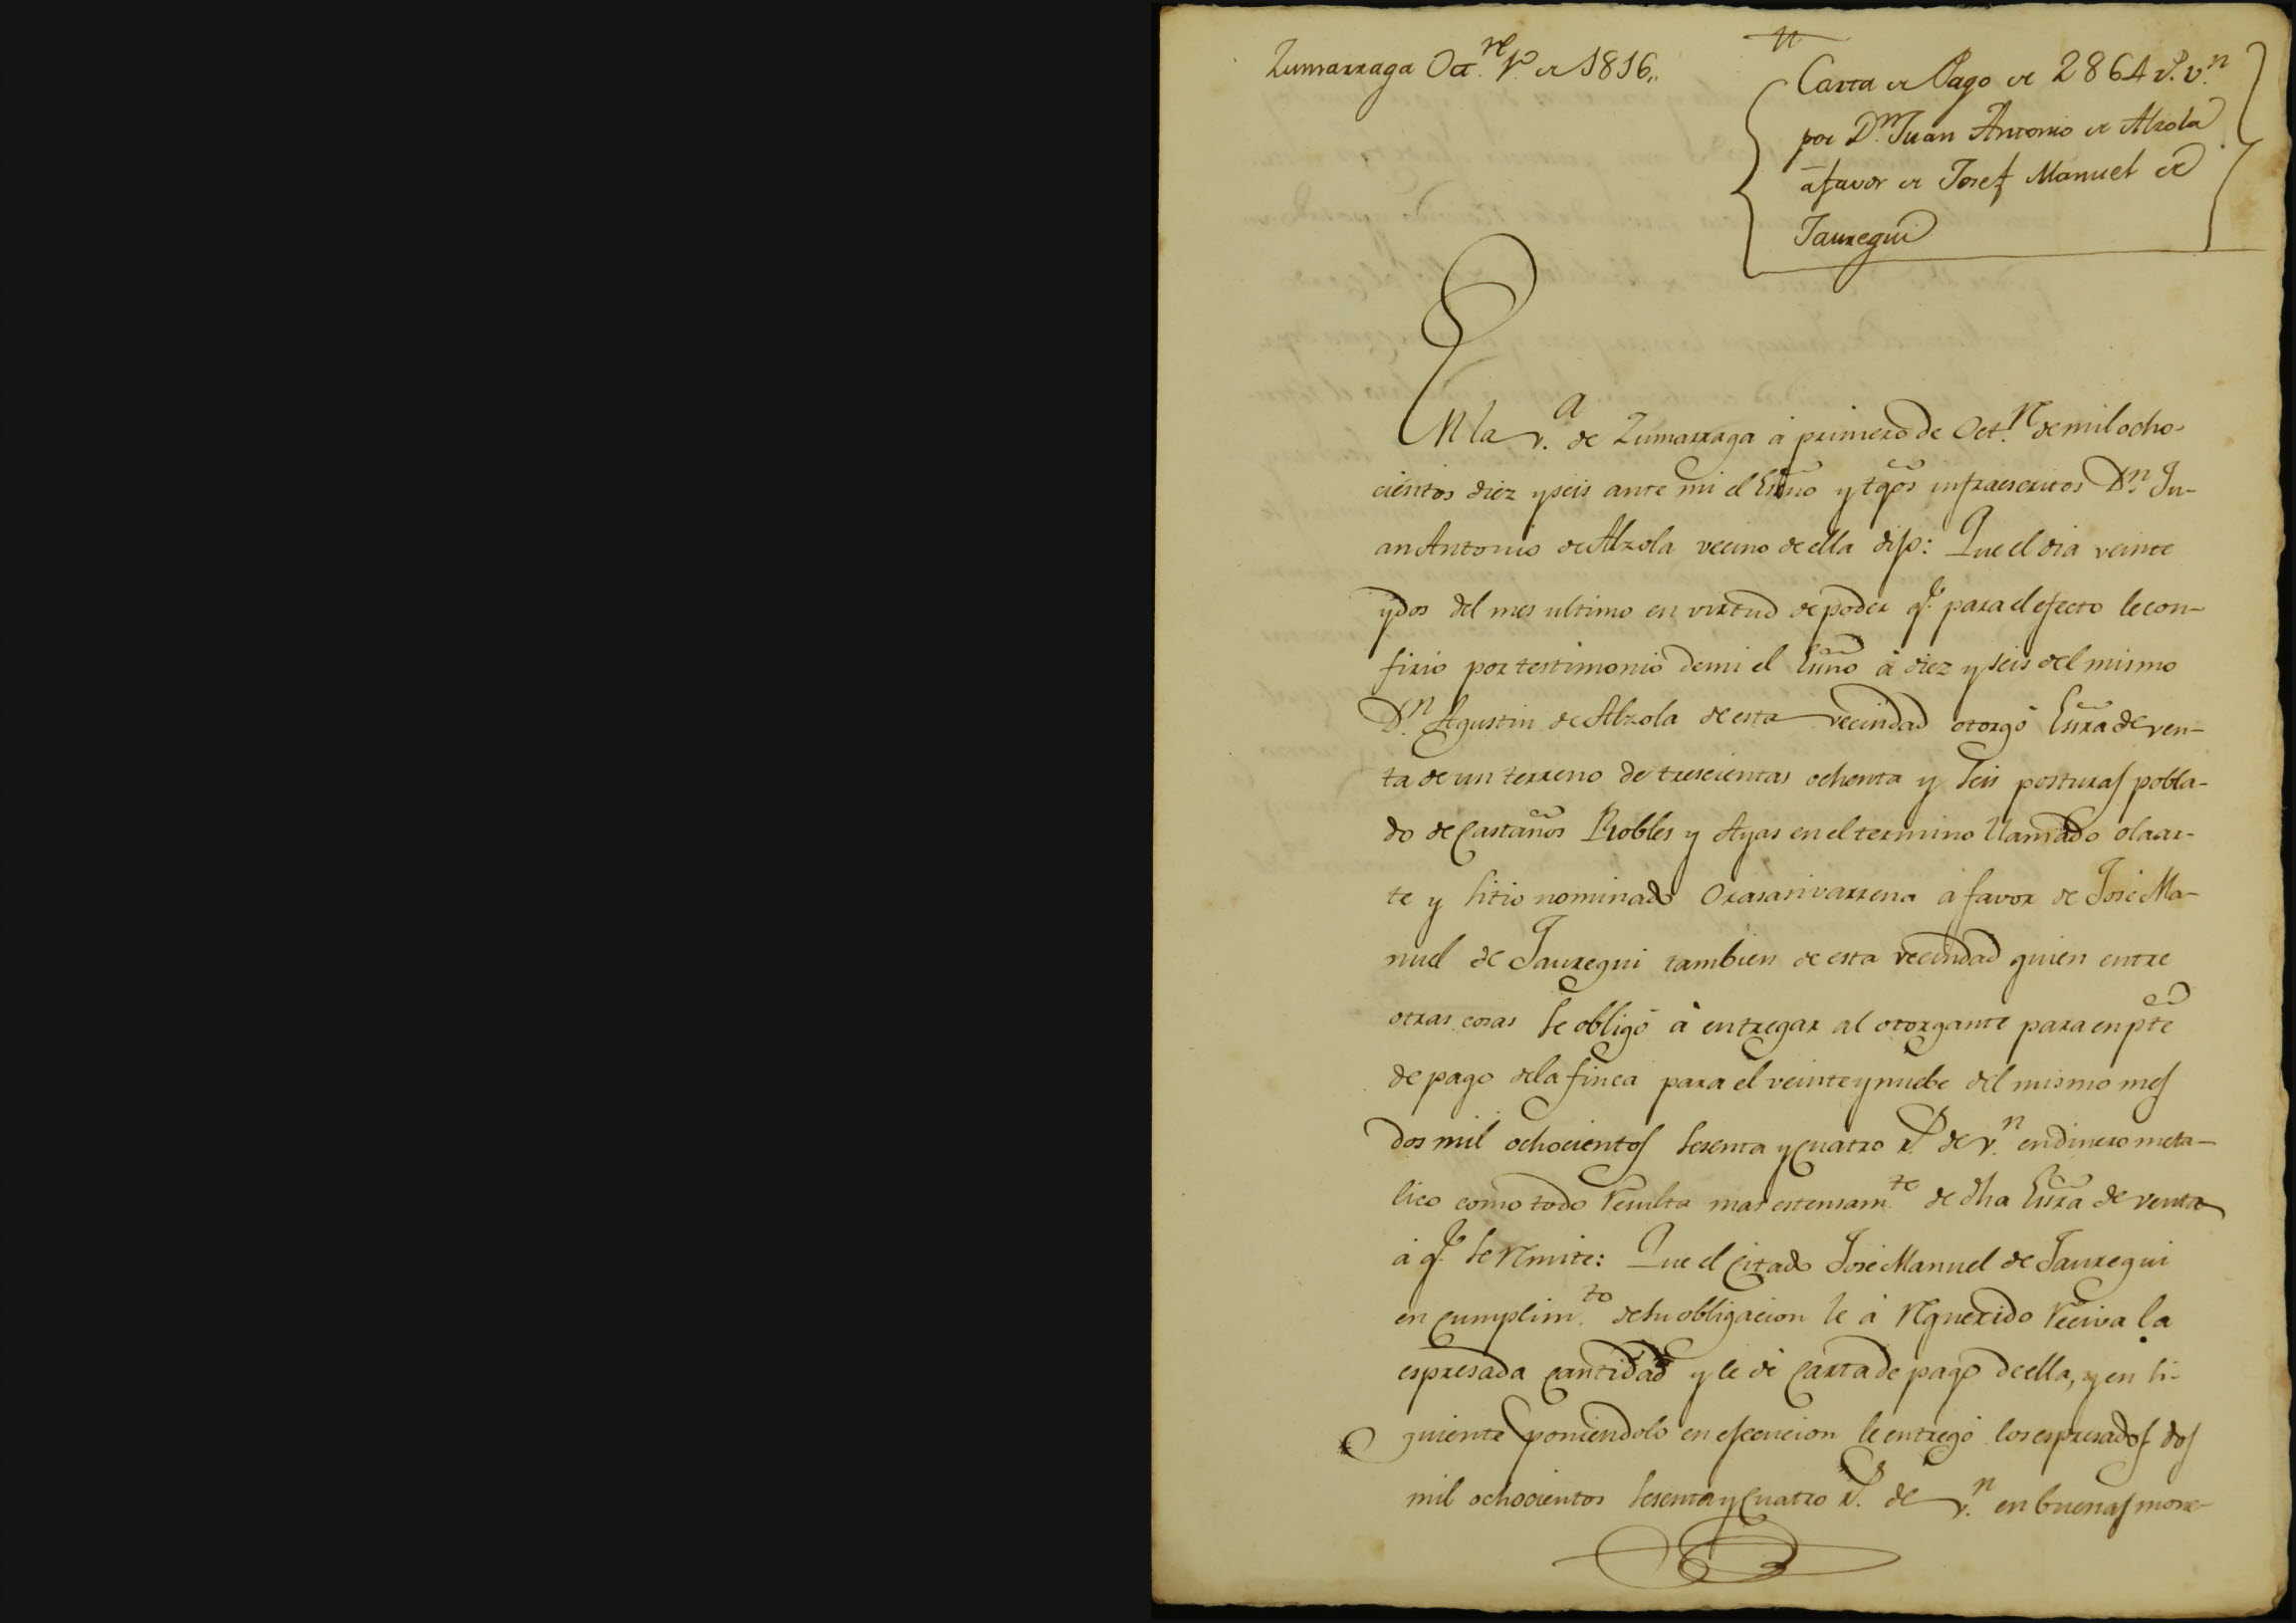 Zumarraga Oct.re 1.º de 1816,,
Carta de Pago de 2864 r.s v.n
por D.n Juan Antonio de Alzola
à favor de Josef Manuel de
Jauregui
En la v.a de Zumarraga à primero de Oct.re de mil ocho-
cientos diez y seis ante mi el Essno y tgos infraescritos D.n Ju-
an Antonio de Alzola vecino de ella dijo: Que el dia veinte
y dos del mes ultimo en virtud de poder q.e para el efecto le con-
firió por testimonio de mi el Essno à diez y seis del mismo
D.n Agustin de Alzola de esta vecindad otorgó Essra de ven-
ta de un terreno de trescientas ochenta y seis posturas pobla-
do de Castaños Robles y Ayas en el termino llamado olaar-
te y sitio nominado Orasasivarrena à favor de José Ma-
nuel de Jauregui tambien de esta vecindad quien entre
otras cosas se obligó à entregar al otorgante para en pte
de pago de la finca para el veinte y nuebe del mismo mes
dos mil ochocientos sesenta y quatro r.s de v.n en dinero meta-
lico como todo resulta mas estensam.te de dha Essra de venta
à q.e se remite: Que el citado José Manuel de Jauregui
en cumplim.to de su obligacion le à requerido reciva la
espresada cantidad y le dé carta de pago de ella, y en si-
guiente poniendolo en ejecucion le entregó los espresados dos
mil ochocientos sesenta y quatro r.s de v.n en buenas mone-